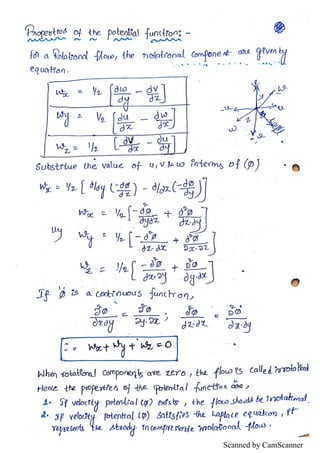 Properties of the potential function: -
For a Rotational flow, the rotational component are given by
equation.
Wx = 1/2 [dw/dy - dv/dz]
Wy = 1/2 [du/dz - dw/dx]
Wz = 1/2 [dv/dx - du/dy]
Substitue the value of u, v & w interms of (Ø)
Wx = 1/2 [d/dy (-dø/dz) - d/dz (-dø/dy)]
Wx = 1/2 [-d²ø/dydz + d²ø/dz.dy]
lly Wy = 1/2 [-d²ø/dz.dx + d²ø/dx.dz]
Wz = 1/2 [-d²ø/dx.dy + d²ø/dy.dx]
If ø is a continuous function,
d²ø/dxdy = d²ø/dy.dx ; d²ø/dz.dx = d²ø/dx.dy
∴ = Wx + Wy + Wz = 0
When rotational components are zero, the flow is called irrotational
Hence the properties of the potential function are,
1. If velocity potential (ø) exists, the flow should be irrotational.
2. If velocity potential (ø) satisfies the Laplace equation, it
represents the steady incompressible irrotational flow.
Scanned by CamScanner